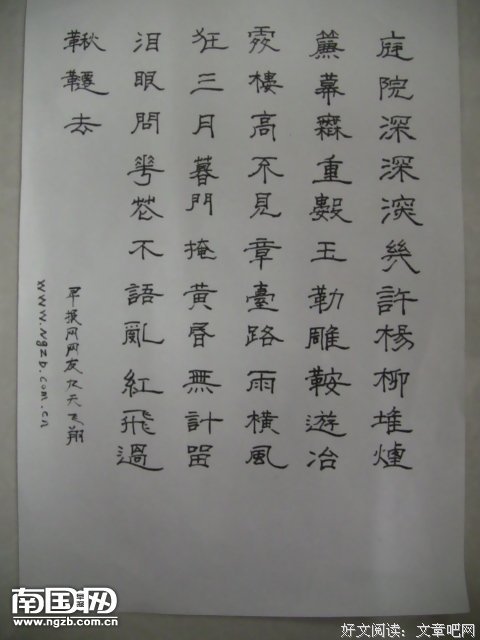 庭院深深深幾許楊柳堆煙
簾幕無重數玉勒雕鞍遊冶
處樓高不見章臺路雨橫風
狂三月暮門掩黃昏無計留
泪眼問花花不語亂紅飛過
鞦韆去
早报网网友天飞翔
www.ngzb.com.cn
南国早报网
www.ngzb.com.cn
好文阅读：文章吧网